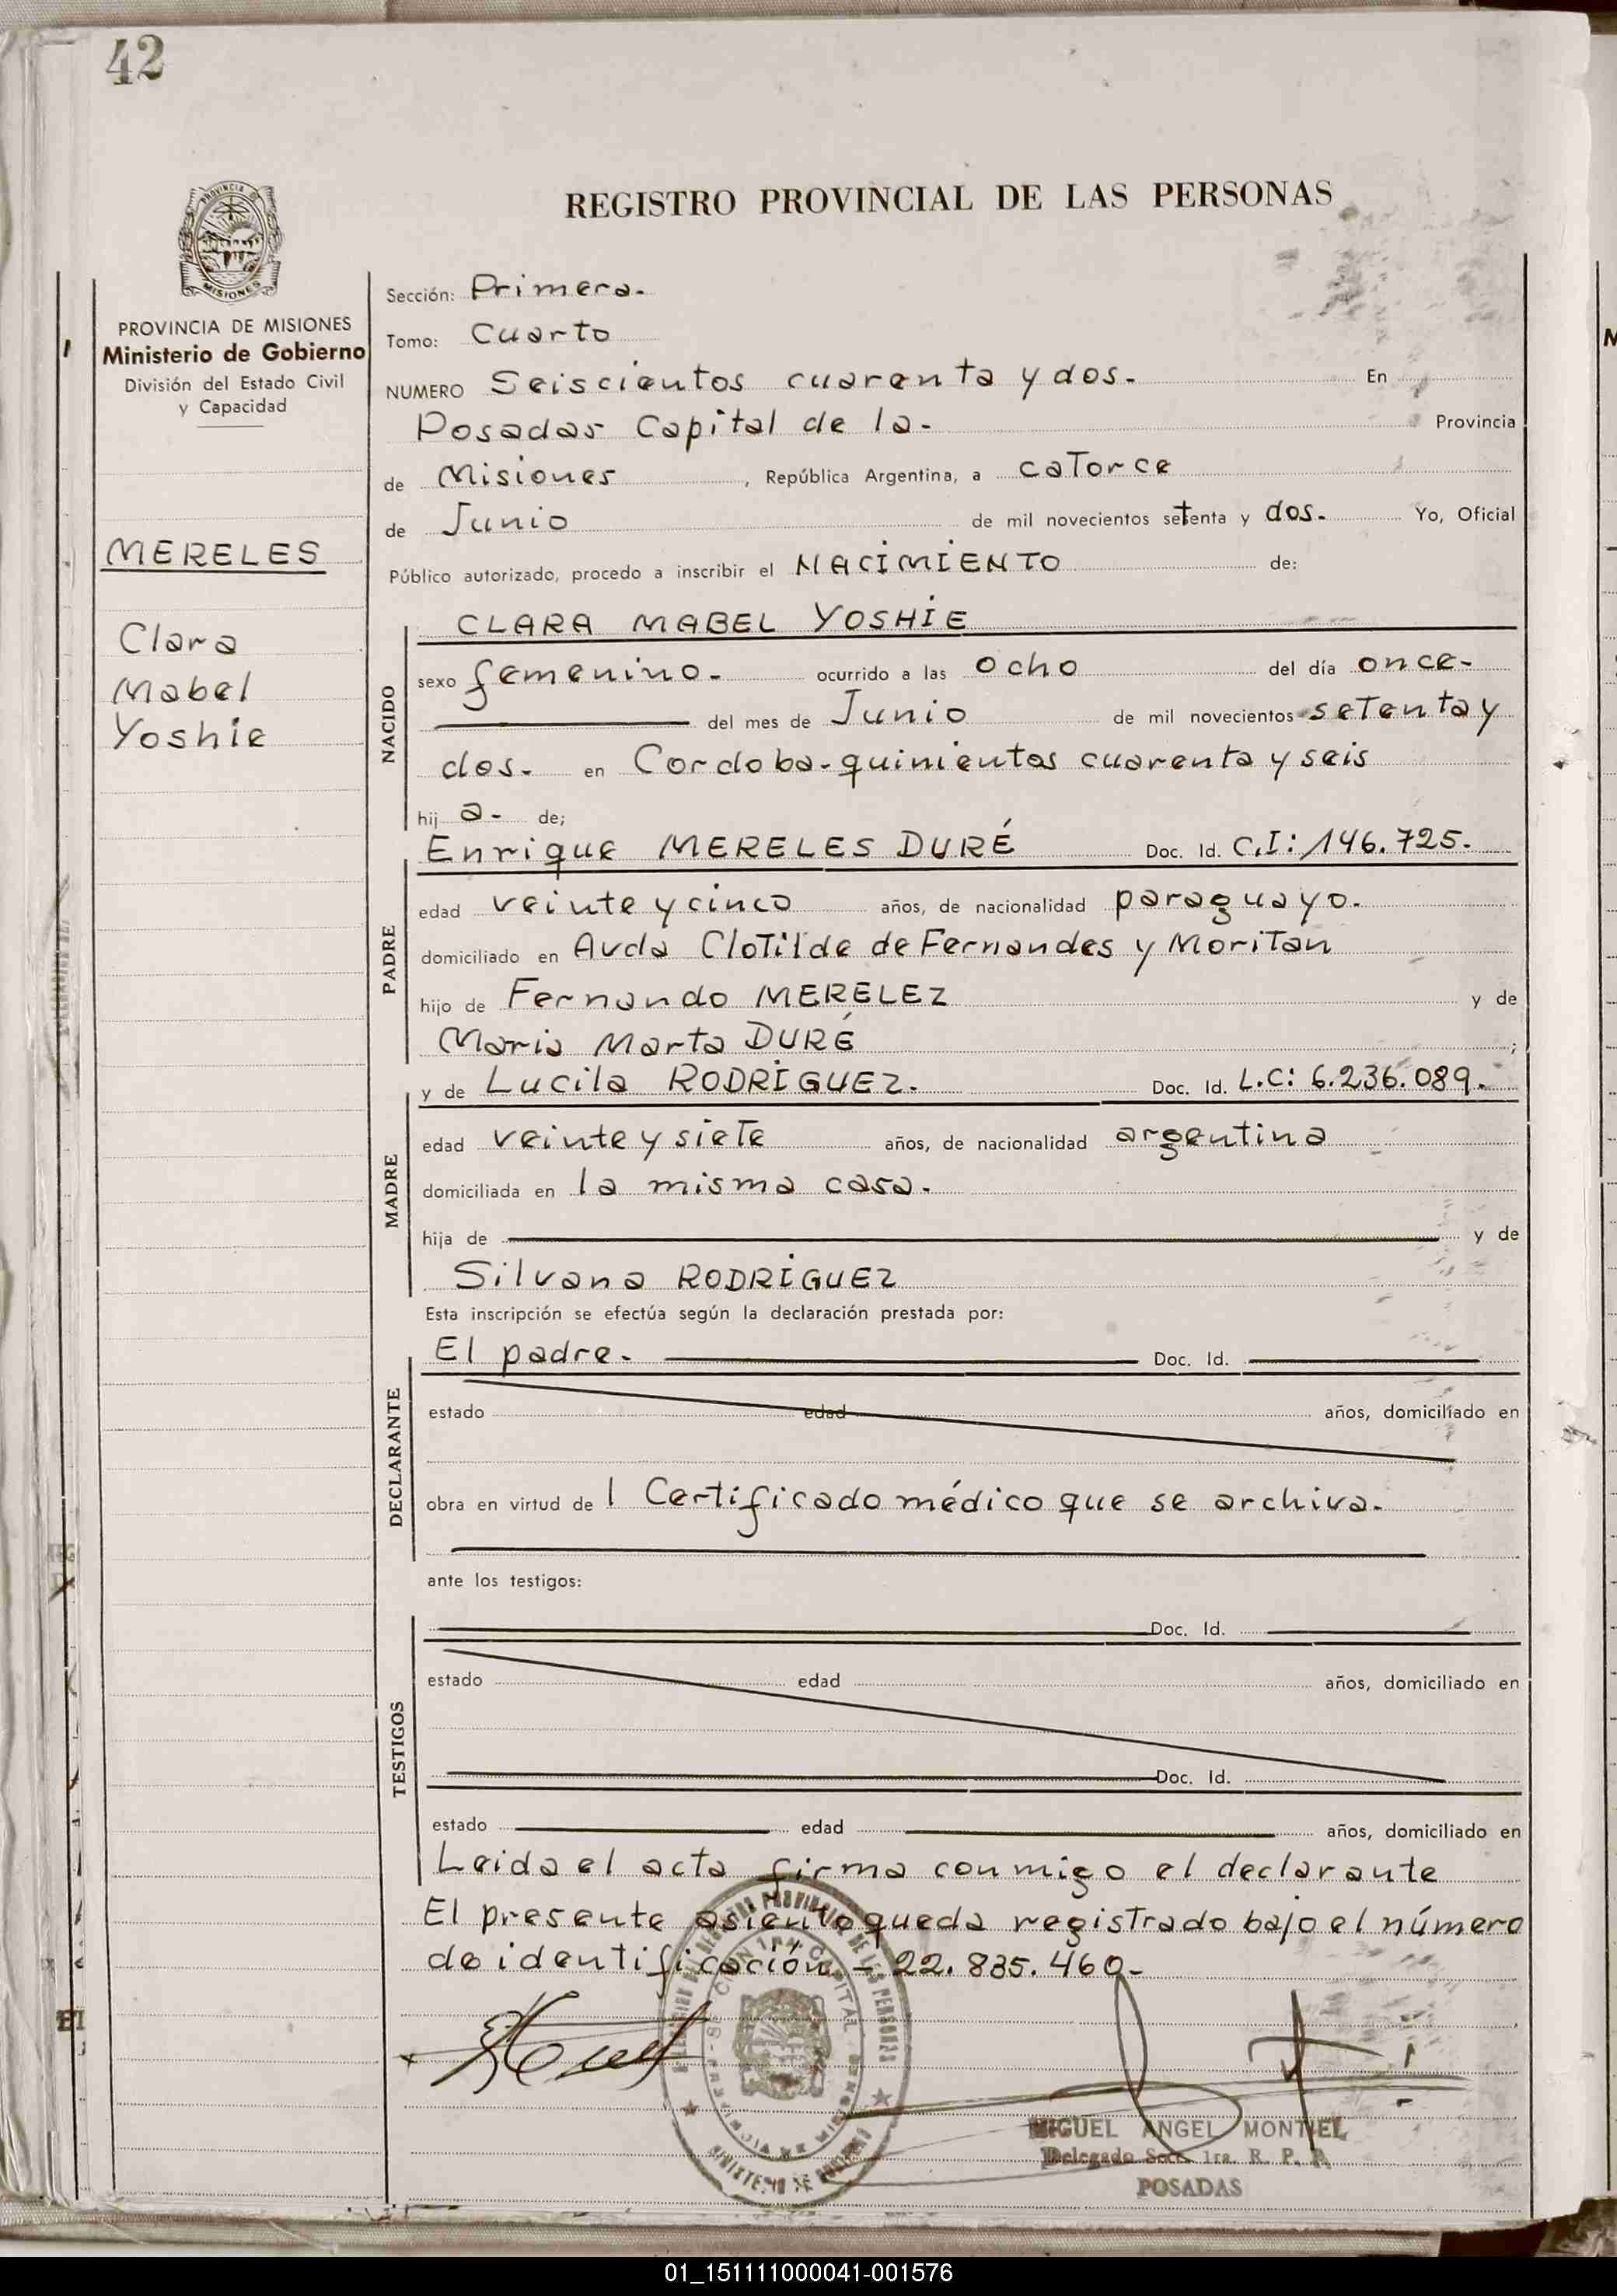 42
REGISTRO PROVINCIAL DE LAS PERSONAS
PROVINCIA DE MISIONES
Ministerio de Gobierno
División del Estado Civil
y Capacidad
MERELES
Clara
Mabel
Yoshie
Sección: Primera.
Tomo: Cuarto
NUMERO Seiscientos cuarenta y dos. En
Posadas Capital de la. Provincia
de Misiones, República Argentina, a caTorce
de Junio de mil novecientos setenta y dos. Yo, Oficial
Público autorizado, procedo a inscribir el NACIMIENTO de:
NACIDO
CLARA MABEL YOSHIE
sexo femenino. ocurrido a las ocho del día once-
del mes de Junio de mil novecientos seTenta y
dos. en Cordoba-quinientos cuarenta y seis
hij a. de;
PADRE
Enrique MERELES DURÉ Doc. Id. C.I: 146.725.
edad veinte y cinco años, de nacionalidad paraguayo.
domiciliado en Avda CloTilde de Fernandes y MoriTan
hijo de Fernando MERELEZ y de
Maria Marta DURÉ ;
MADRE
y de Lucila RODRIGUEZ. Doc. Id. L.C: 6.236.089.
edad veinte y sieTe años, de nacionalidad argentina
domiciliada en la misma casa.
hija de y de
Silvana RODRIGUEZ
Esta inscripción se efectúa según la declaración prestada por:
DECLARANTE
El padre. Doc. Id.
estado edad años, domiciliado en
obra en virtud de l Certificado médico que se archiva.
ante los testigos:
TESTIGOS
Doc. Id.
estado edad años, domiciliado en
Doc. Id.
estado edad años, domiciliado en
Leida el acta firma conmigo el declarante
El presente asiento queda registrado bajo el número
de identificación - 22.835.460-
MIGUEL ANGEL MONTIEL
Delegado Secc. 1ra. R. P. P.
POSADAS
01_151111000041-001576